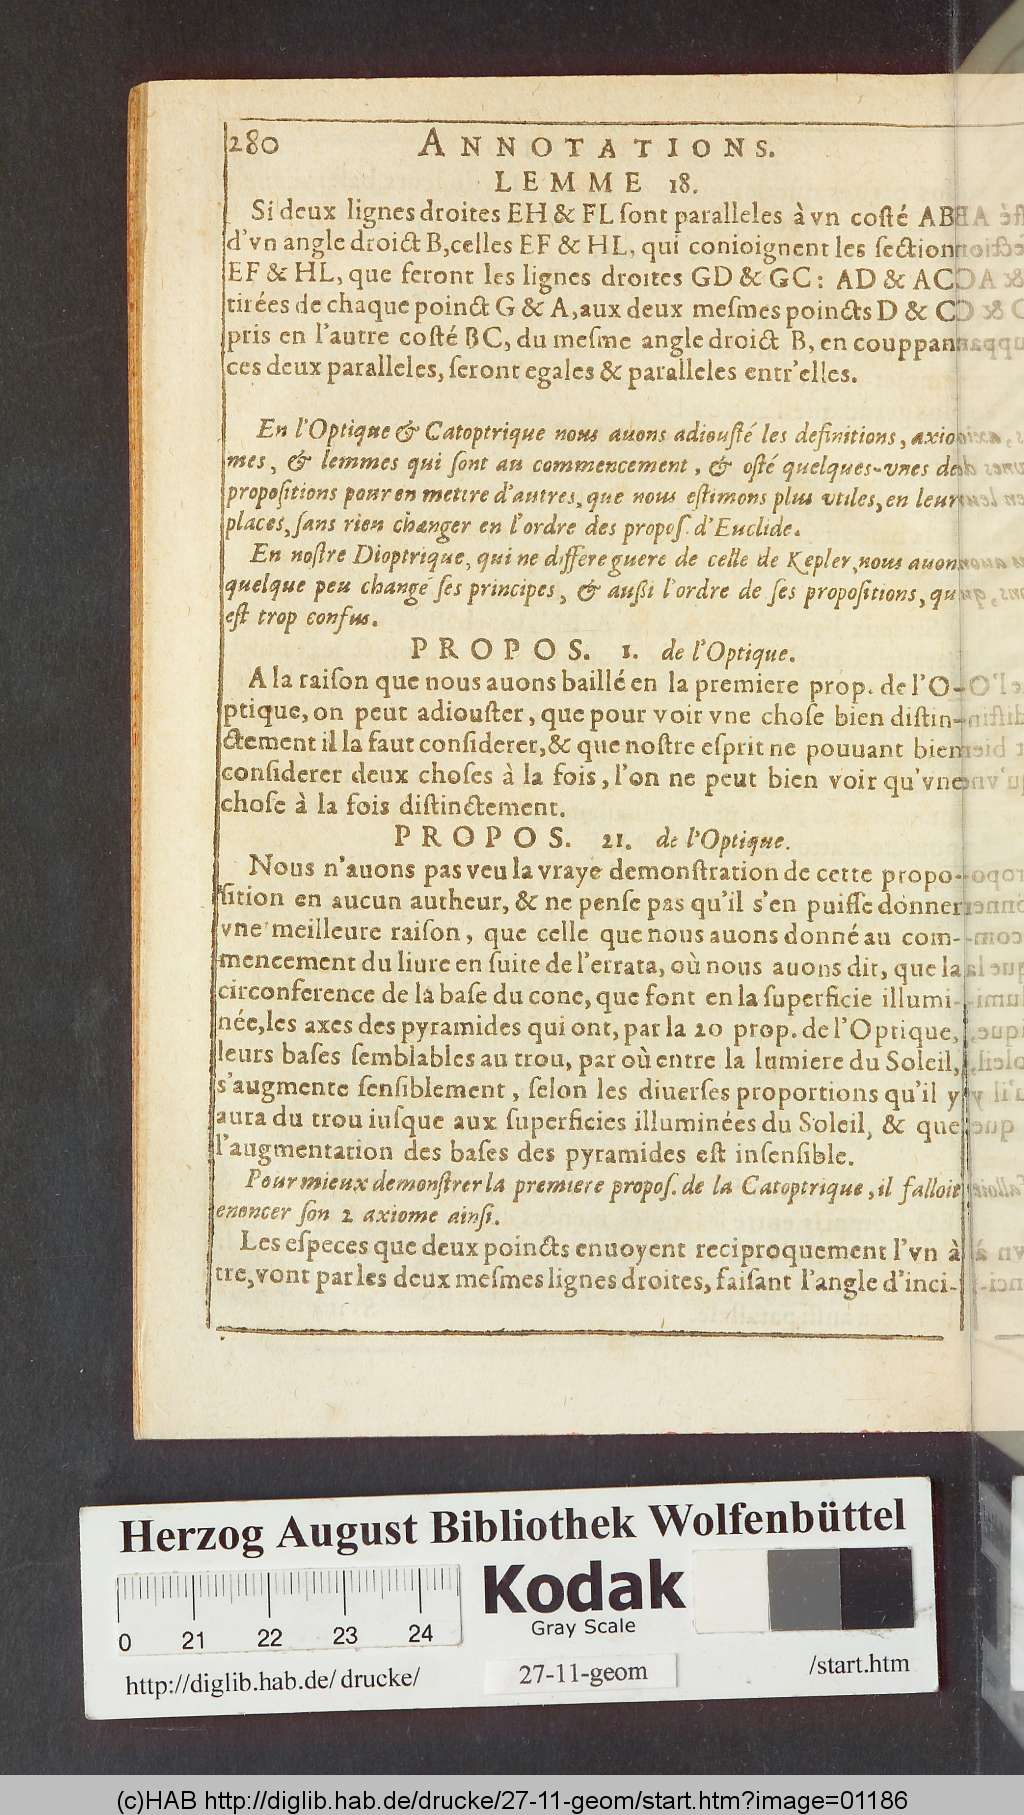 280 ANNOTATIONS.
LEMME 18.
Si deux lignes droites EH & FL ſont paralleles à vn coſté AB
d'vn angle droict B, celles EF & HL, qui conioignent les ſection
EF & HL, que feront les lignes droites GD & GC: AD & AC
tirées de chaque poinct G & A, aux deux meſmes poincts D & C
pris en l'autre coſté BC, du meſme angle droict B, en couppan
ces deux paralleles, ſeront egales & paralleles entr'elles.
En l'Optique & Catoptrique nous auons adiouſté les definitions, axio
mes, & lemmes qui ſont au commencement, & oſté quelques-vnes de
propoſitions pour en mettre d'autres, que nous eſtimons plus vtiles, en leur
places, ſans rien changer en l'ordre des propoſ. d'Euclide.
En noſtre Dioptrique, qui ne differe guere de celle de Kepler, nous auon
quelque peu changé ſes principes, & außi l'ordre de ſes propoſitions, qu
eſt trop confus.
PROPOS. 1. de l'Optique.
A la raiſon que nous auons baillé en la premiere prop. de l'O-
ptique, on peut adiouſter, que pour voir vne choſe bien diſtin-
ctement il la faut conſiderer, & que noſtre eſprit ne pouuant bien
conſiderer deux choſes à la fois, l'on ne peut bien voir qu'vne
choſe à la fois diſtinctement.
PROPOS. 21. de l'Optique.
Nous n'auons pas veu la vraye demonſtration de cette propo-
ſition en aucun autheur, & ne penſe pas qu'il s'en puiſſe donner
vne meilleure raiſon, que celle que nous auons donné au com-
mencement du liure en ſuite de l'errata, où nous auons dit, que la
circonference de la baſe du cone, que font en la ſuperficie illumi-
née, les axes des pyramides qui ont, par la 20 prop. de l'Optique,
leurs baſes ſemblables au trou, par où entre la lumiere du Soleil,
s'augmente ſenſiblement, ſelon les diuerſes proportions qu'il y
aura du trou iuſque aux ſuperficies illuminées du Soleil, & que
l'augmentation des baſes des pyramides eſt inſenſible.
Pour mieux demonſtrer la premiere propoſ. de la Catoptrique, il falloit
enoncer ſon 2 axiome ainſi.
Les eſpeces que deux poincts enuoyent reciproquement l'vn à
tre, vont par les deux meſmes lignes droites, faiſant l'angle d'inci-
Herzog August Bibliothek Wolfenbüttel
Kodak
Gray Scale
0 21 22 23 24
http://diglib.hab.de/drucke/ 27-11-geom /start.htm
(c)HAB http://diglib.hab.de/drucke/27-11-geom/start.htm?image=01186